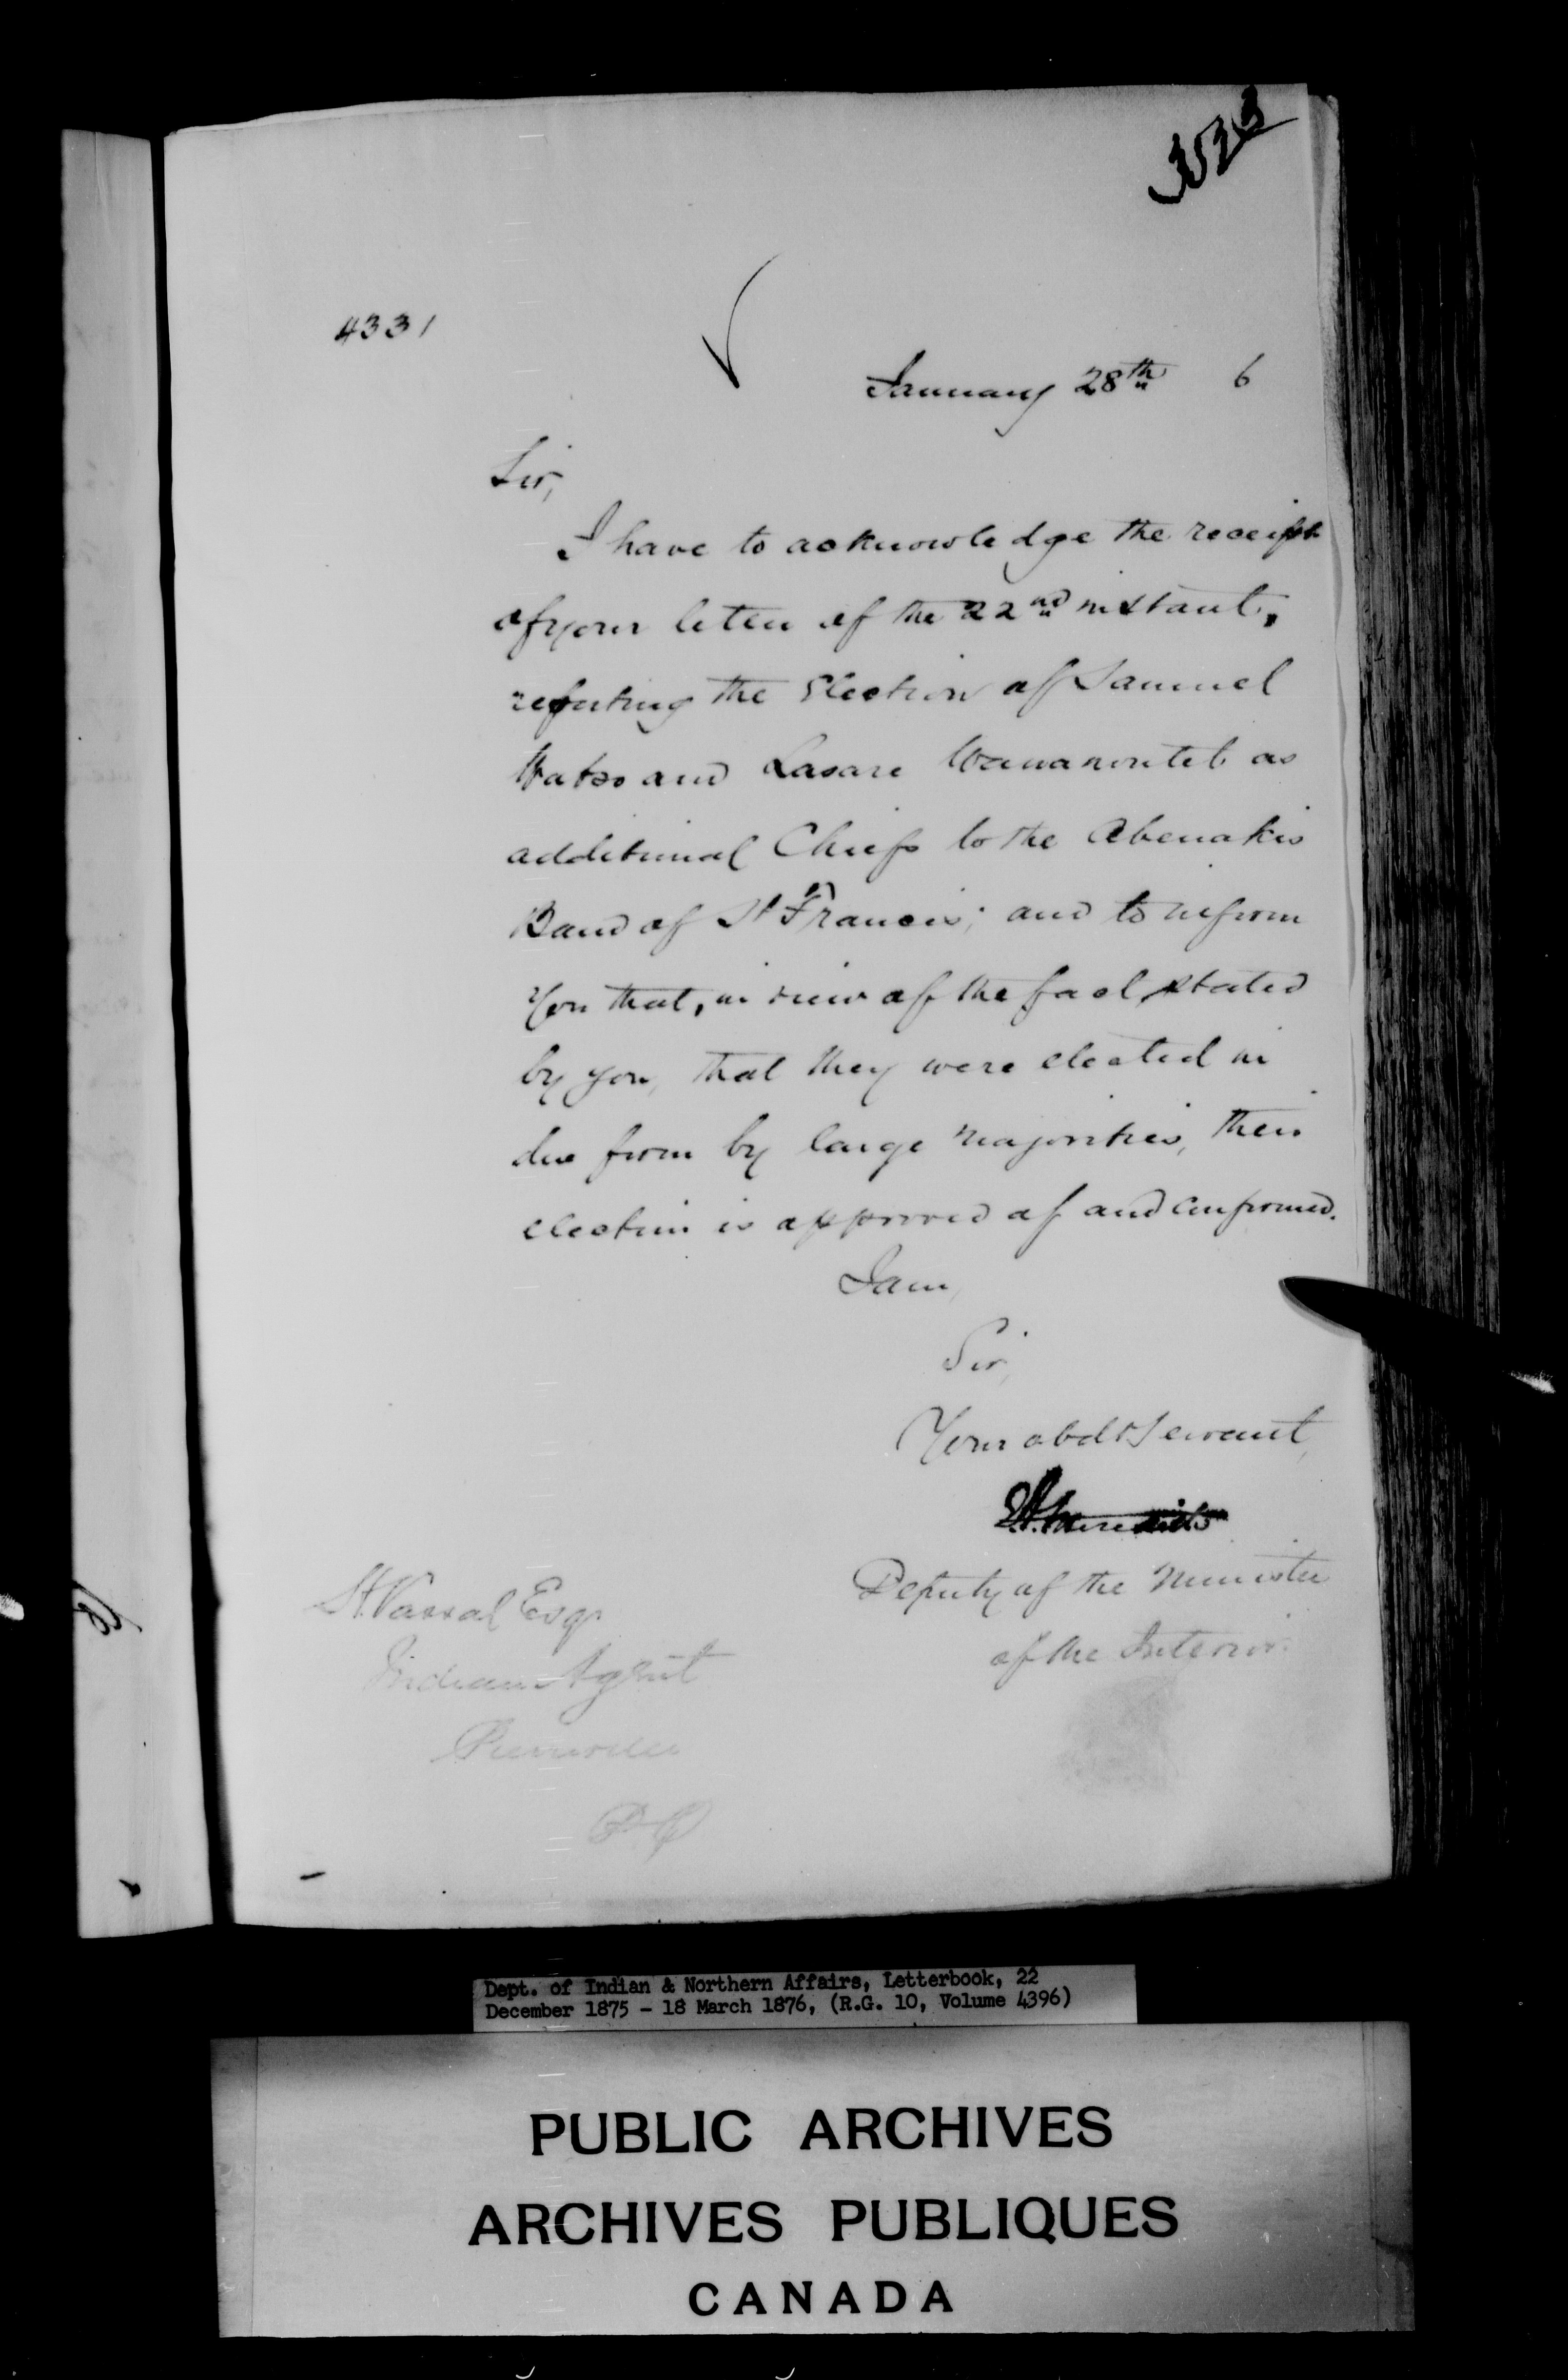 4331
January 28th 6
Sir,
I have to acknowledge the receipt
of your letter of the 22nd instant,
reporting the Election of Samuel
Watso and Lazare Wawanoulet as
additional Chiefs to the Abenakis
Band of St Francis; and to inform
you that, in view of the fact, stated
by you, that they were elected in
due form by large majorities, their
election is approved of and confirmed.
I am,
Sir,
Your obdt Servant,
E.A. Meredith
Deputy of the Minister
of the Interior.
H. Vassal Esqr
Indian Agent
Pierreville
P.Q
Dept. of Indian & Northern Affairs, Letterbook, 22
December 1875 - 18 March 1876, (R.G. 10, Volume 4396)
PUBLIC ARCHIVES
ARCHIVES PUBLIQUES
CANADA